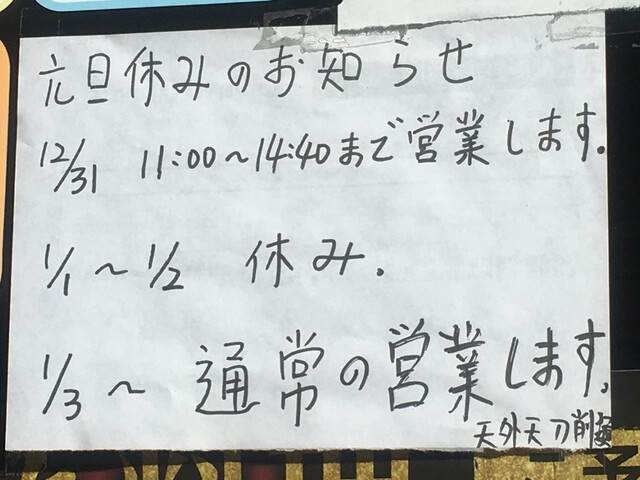 元旦休みのお知らせ
12/31 11:00～14:40まで営業します.
1/1～1/2 休み.
1/3～ 通常の営業します.
天外天刀削麺